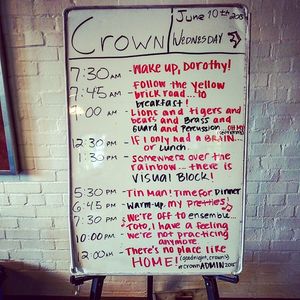 Crown
June 10th
WEDNESDAY
7:30 AM - Wake up, Dorothy!
7:45 AM - Follow the yellow
brick road...to
breakfast!
:00 AM - Lions and tigers and
bears and Brass and
Guard and Percussion... OH MY
12:30 PM - IF I only had a BRAIN..
or Lunch.
1:30 PM - Somewhere over the
rainbow... there is
VISUAL BLOCK!
5:30 PM - Tin Man! Time for Dinner
6:45 PM - Warm-up, my Pretties!
7:30 PM - We're off to ensemble...
10:00 PM - Toto, I have a feeling
we're not practicing
anymore
12:00 AM - There's no place like
HOME! (goodnight, crown!)